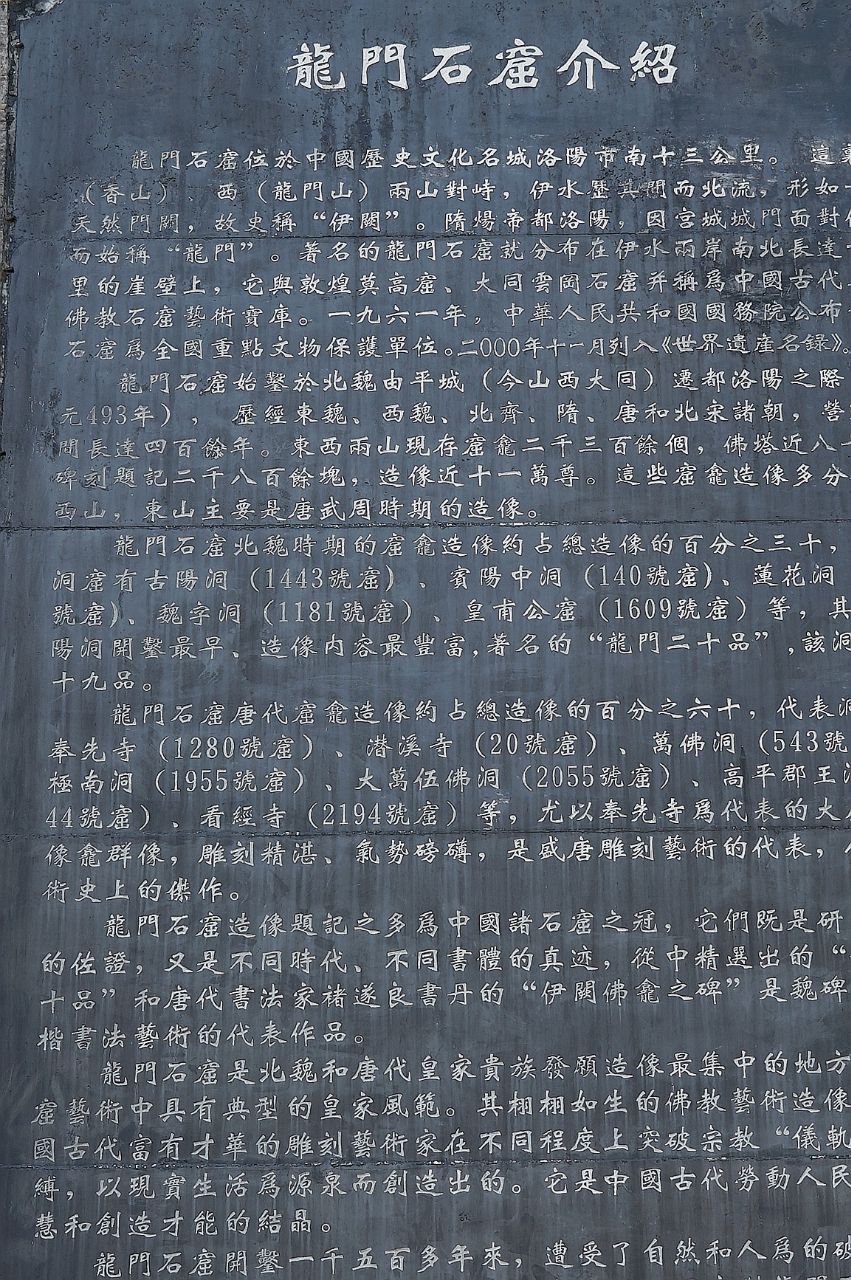 龍門石窟介紹
龍門石窟位於中國歷史文化名城洛陽市南十三公里。 這裏
(香山) 西(龍門山)兩山對峙，伊水歷其間而北流，形如一
天然門闕，故史稱“伊闕”。隋煬帝都洛陽，因宮城城門面對伊
而始稱“龍門”。著名的龍門石窟就分布在伊水兩岸南北長達
里的崖壁上，它與敦煌莫高窟、大同雲岡石窟并稱爲中國古代
佛教石窟藝術寶庫。一九六一年，中華人民共和國國務院公布
石窟爲全國重點文物保護單位。二000年十一月列入《世界遺産名錄》。
龍門石窟始鑿於北魏由平城(今山西大同)遷都洛陽之際
元493年)， 歷經東魏、西魏、北齊、隋、唐和北宋諸朝，營
間長達四百餘年。東西兩山現存窟龕二千三百餘個，佛塔近八十
碑刻題記二千八百餘塊，造像近十一萬尊。這些窟龕造像多分
西山，東山主要是唐武周時期的造像。
龍門石窟北魏時期的窟龕造像約占總造像的百分之三十，
洞窟有古陽洞(1443號窟)、賓陽中洞(140號窟)、蓮花洞
號窟)、魏字洞(1181號窟)、皇甫公窟(1609號窟)等，其
陽洞開鑿最早、造像内容最豐富,著名的“龍門二十品”,該洞
十九品。
龍門石窟唐代窟龕造像約占總造像的百分之六十，代表洞
奉先寺(1280號窟)、潜溪寺(20號窟)、萬佛洞(543號
極南洞(1955號窟)、大萬伍佛洞(2055號窟)、高平郡王洞
44號窟)、看經寺(2194號窟)等，尤以奉先寺爲代表的大
像龕群像，雕刻精湛、氣勢磅礴，是盛唐雕刻藝術的代表，
術史上的傑作。
龍門石窟造像題記之多爲中國諸石窟之冠，它們既是研
的佐證，又是不同時代、不同書體的真迹，從中精選出的“
十品”和唐代書法家褚遂良書丹的“伊闕佛龕之碑”是魏碑
楷書法藝術的代表作品。
龍門石窟是北魏和唐代皇家貴族發願造像最集中的地方
窟藝術中具有典型的皇家風範。其栩栩如生的佛教藝術造像
國古代富有才華的雕刻藝術家在不同程度上突破宗教“儀軌
縛，以現實生活爲源泉而創造出的。它是中國古代勞動人民
慧和創造才能的結晶。
龍門石窟開鑿一千五百多年來，遭受了自然和人爲的破